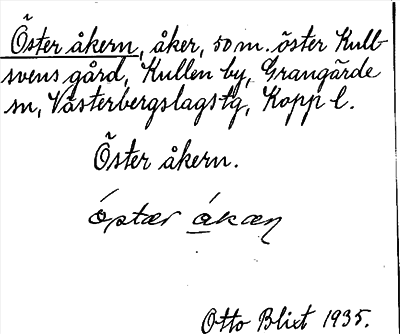 Öster åkern, åker, 50 m. öster Kulb-
svens gård, Kullen by, Grangärde
sn, Västerbergslags tg, Kopp l.
Öster åkern.
Otto Blixt 1935.